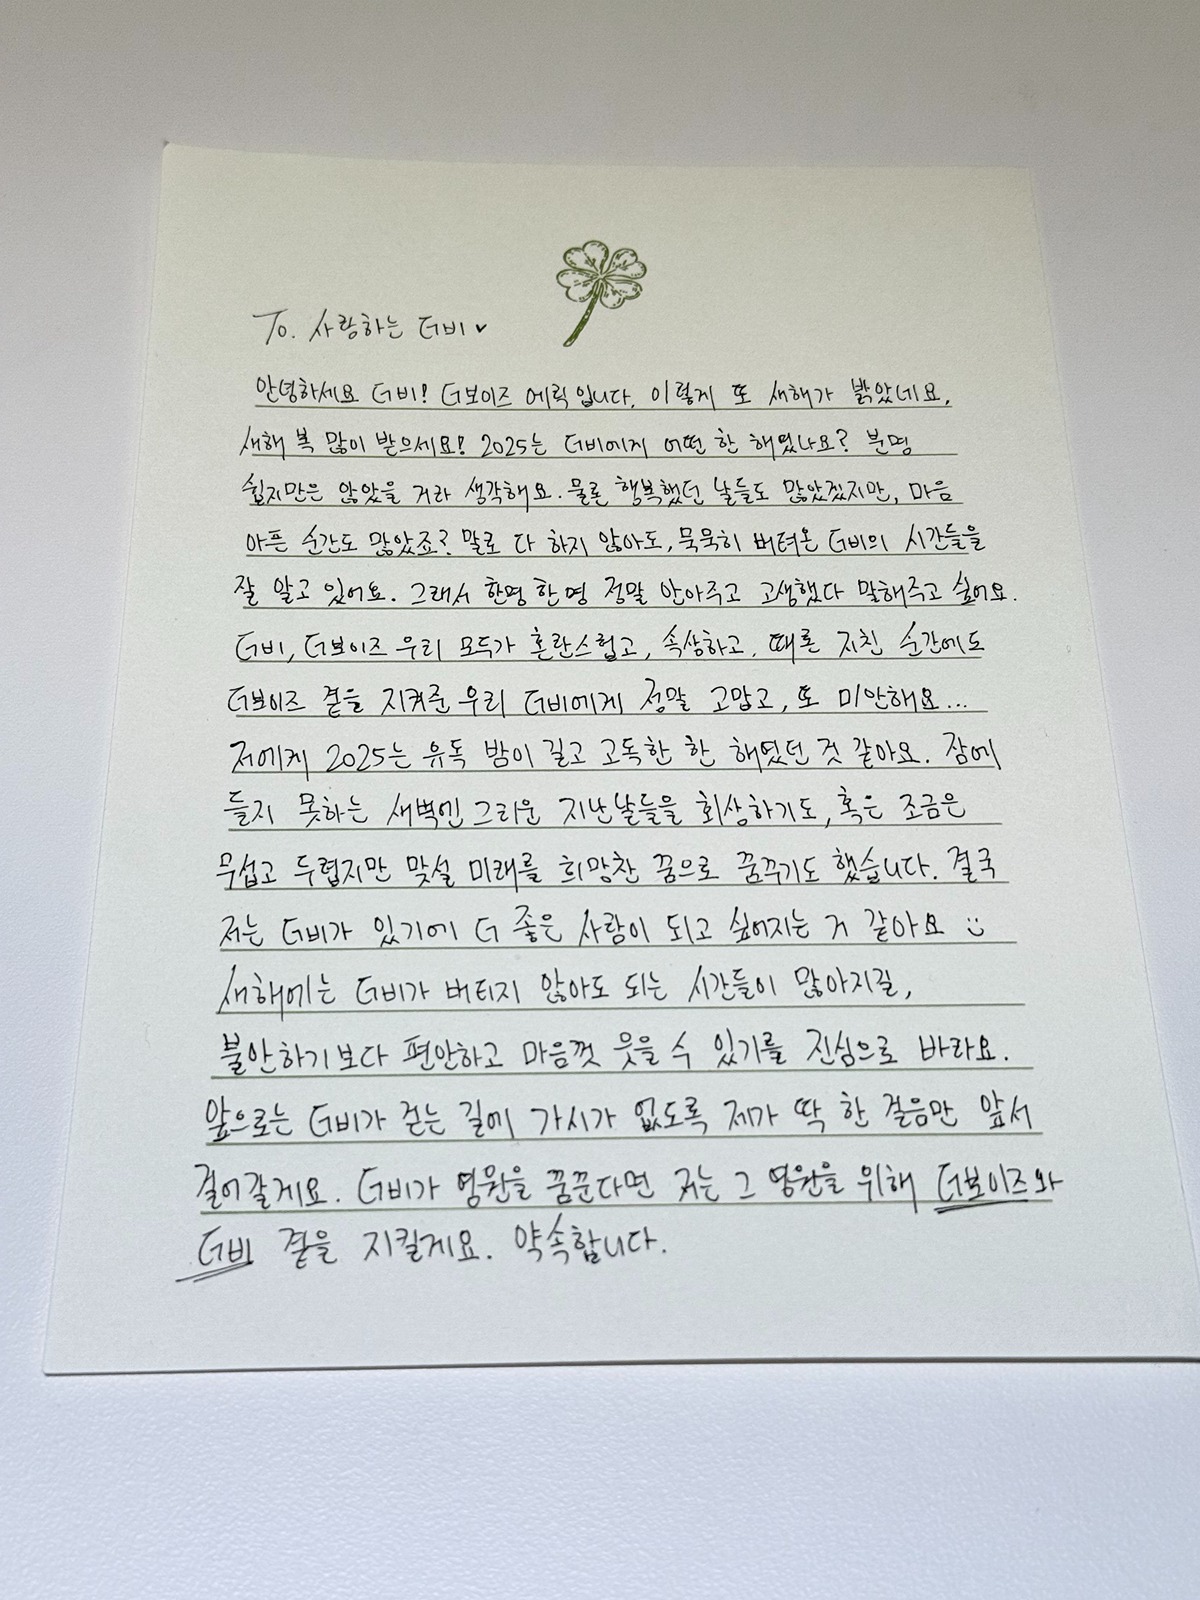 To. 사랑하는 더비♥
안녕하세요 더비! 더보이즈 에릭입니다. 이렇게 또 새해가 밝았네요.
새해 복 많이 받으세요! 2025는 더비에게 어떤 한 해였나요? 분명
쉽지만은 않았을 거라 생각해요. 물론 행복했던 날들도 많았겠지만, 마음
아픈 순간도 많았죠? 말로 다 하지 않아도, 묵묵히 버텨온 더비의 시간들을
잘 알고 있어요. 그래서 한명 한명 정말 안아주고 고생했다 말해주고 싶어요.
더비, 더보이즈 우리 모두가 혼란스럽고, 속상하고, 때론 지친 순간에도
더보이즈 곁을 지켜준 우리 더비에게 정말 고맙고, 또 미안해요...
저에게 2025는 유독 밤이 길고 고독한 한 해였던 것 같아요. 잠에
들지 못하는 새벽엔 그리운 지난날들을 회상하기도, 혹은 조금은
무섭고 두렵지만 맞설 미래를 희망찬 꿈으로 꿈꾸기도 했습니다. 결국
저는 더비가 있기에 더 좋은 사람이 되고 싶어지는 거 같아요 :)
새해에는 더비가 버티지 않아도 되는 시간들이 많아지길,
불안하기보다 편안하고 마음껏 웃을 수 있기를 진심으로 바라요.
앞으로는 더비가 걷는 길에 가시가 없도록 제가 딱 한 걸음만 앞서
걸어갈게요. 더비가 영원을 꿈꾼다면 저는 그 영원을 위해 더보이즈와
더비 곁을 지킬게요. 약속합니다.